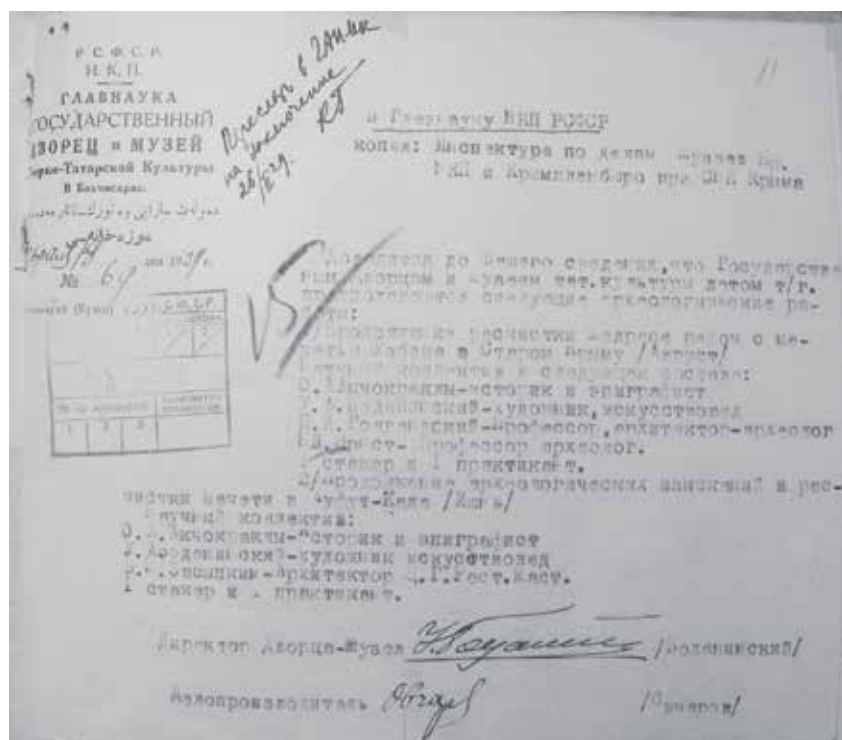 Р. С. Ф. С. Р.
Н. К. П.
ГЛАВНАУКА
ГОСУДАРСТВЕННЫЙ
ДВОРЕЦ и МУЗЕЙ
Тюрко-Татарской Культуры
В Бахчисарае.
192 г.
№ 69
1 2 3
на заключение
11
В Главнауку НКП РСФСР
копия: Инспектура по делам музеев Кр.
НКП и Крымпланбюро при СНК Крыма
Доводится до Вашего сведения, что Государствен
ным Дворцом и Музеем тат.культуры летом т/г.
предполагаются следующие археологические ра-
боты:
1/Продолжение расчистки Медресе рядом с ме-
четью Узбека в Старом Крыму /Август/
Научный коллектив в следующем составе:
О. Акчокраклы-историк и эпиграфист
У. А. Боданинский-художник, искусствовед
профессор, архитектор-археолог
профессор археолог.
1 стажер и 1 практикант.
2/Продолжение археологических изысканий и рас-
чистки мечети в Чуфут-Кале /Июнь/
Научный коллектив:
О. А. Акчокраклы-историк и эпиграфист
У. Боданинский-художник искусствовед
Архитектор Ц.Г.Рест.Маст.
1 стажер и 1 практикант.
Директор Дворца-Музея /Боданинский/
Делопроизводитель /Овчаров/